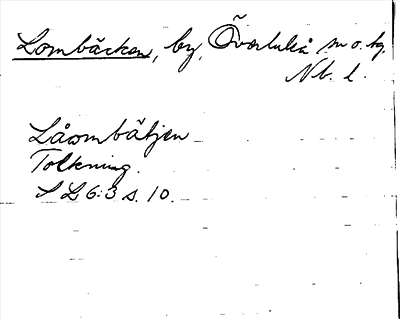 Lombäcken, by, Överluleå sn o. kg.
Nb. l.
Låombätjen
Tolkning.
SL 6:3 s. 10.